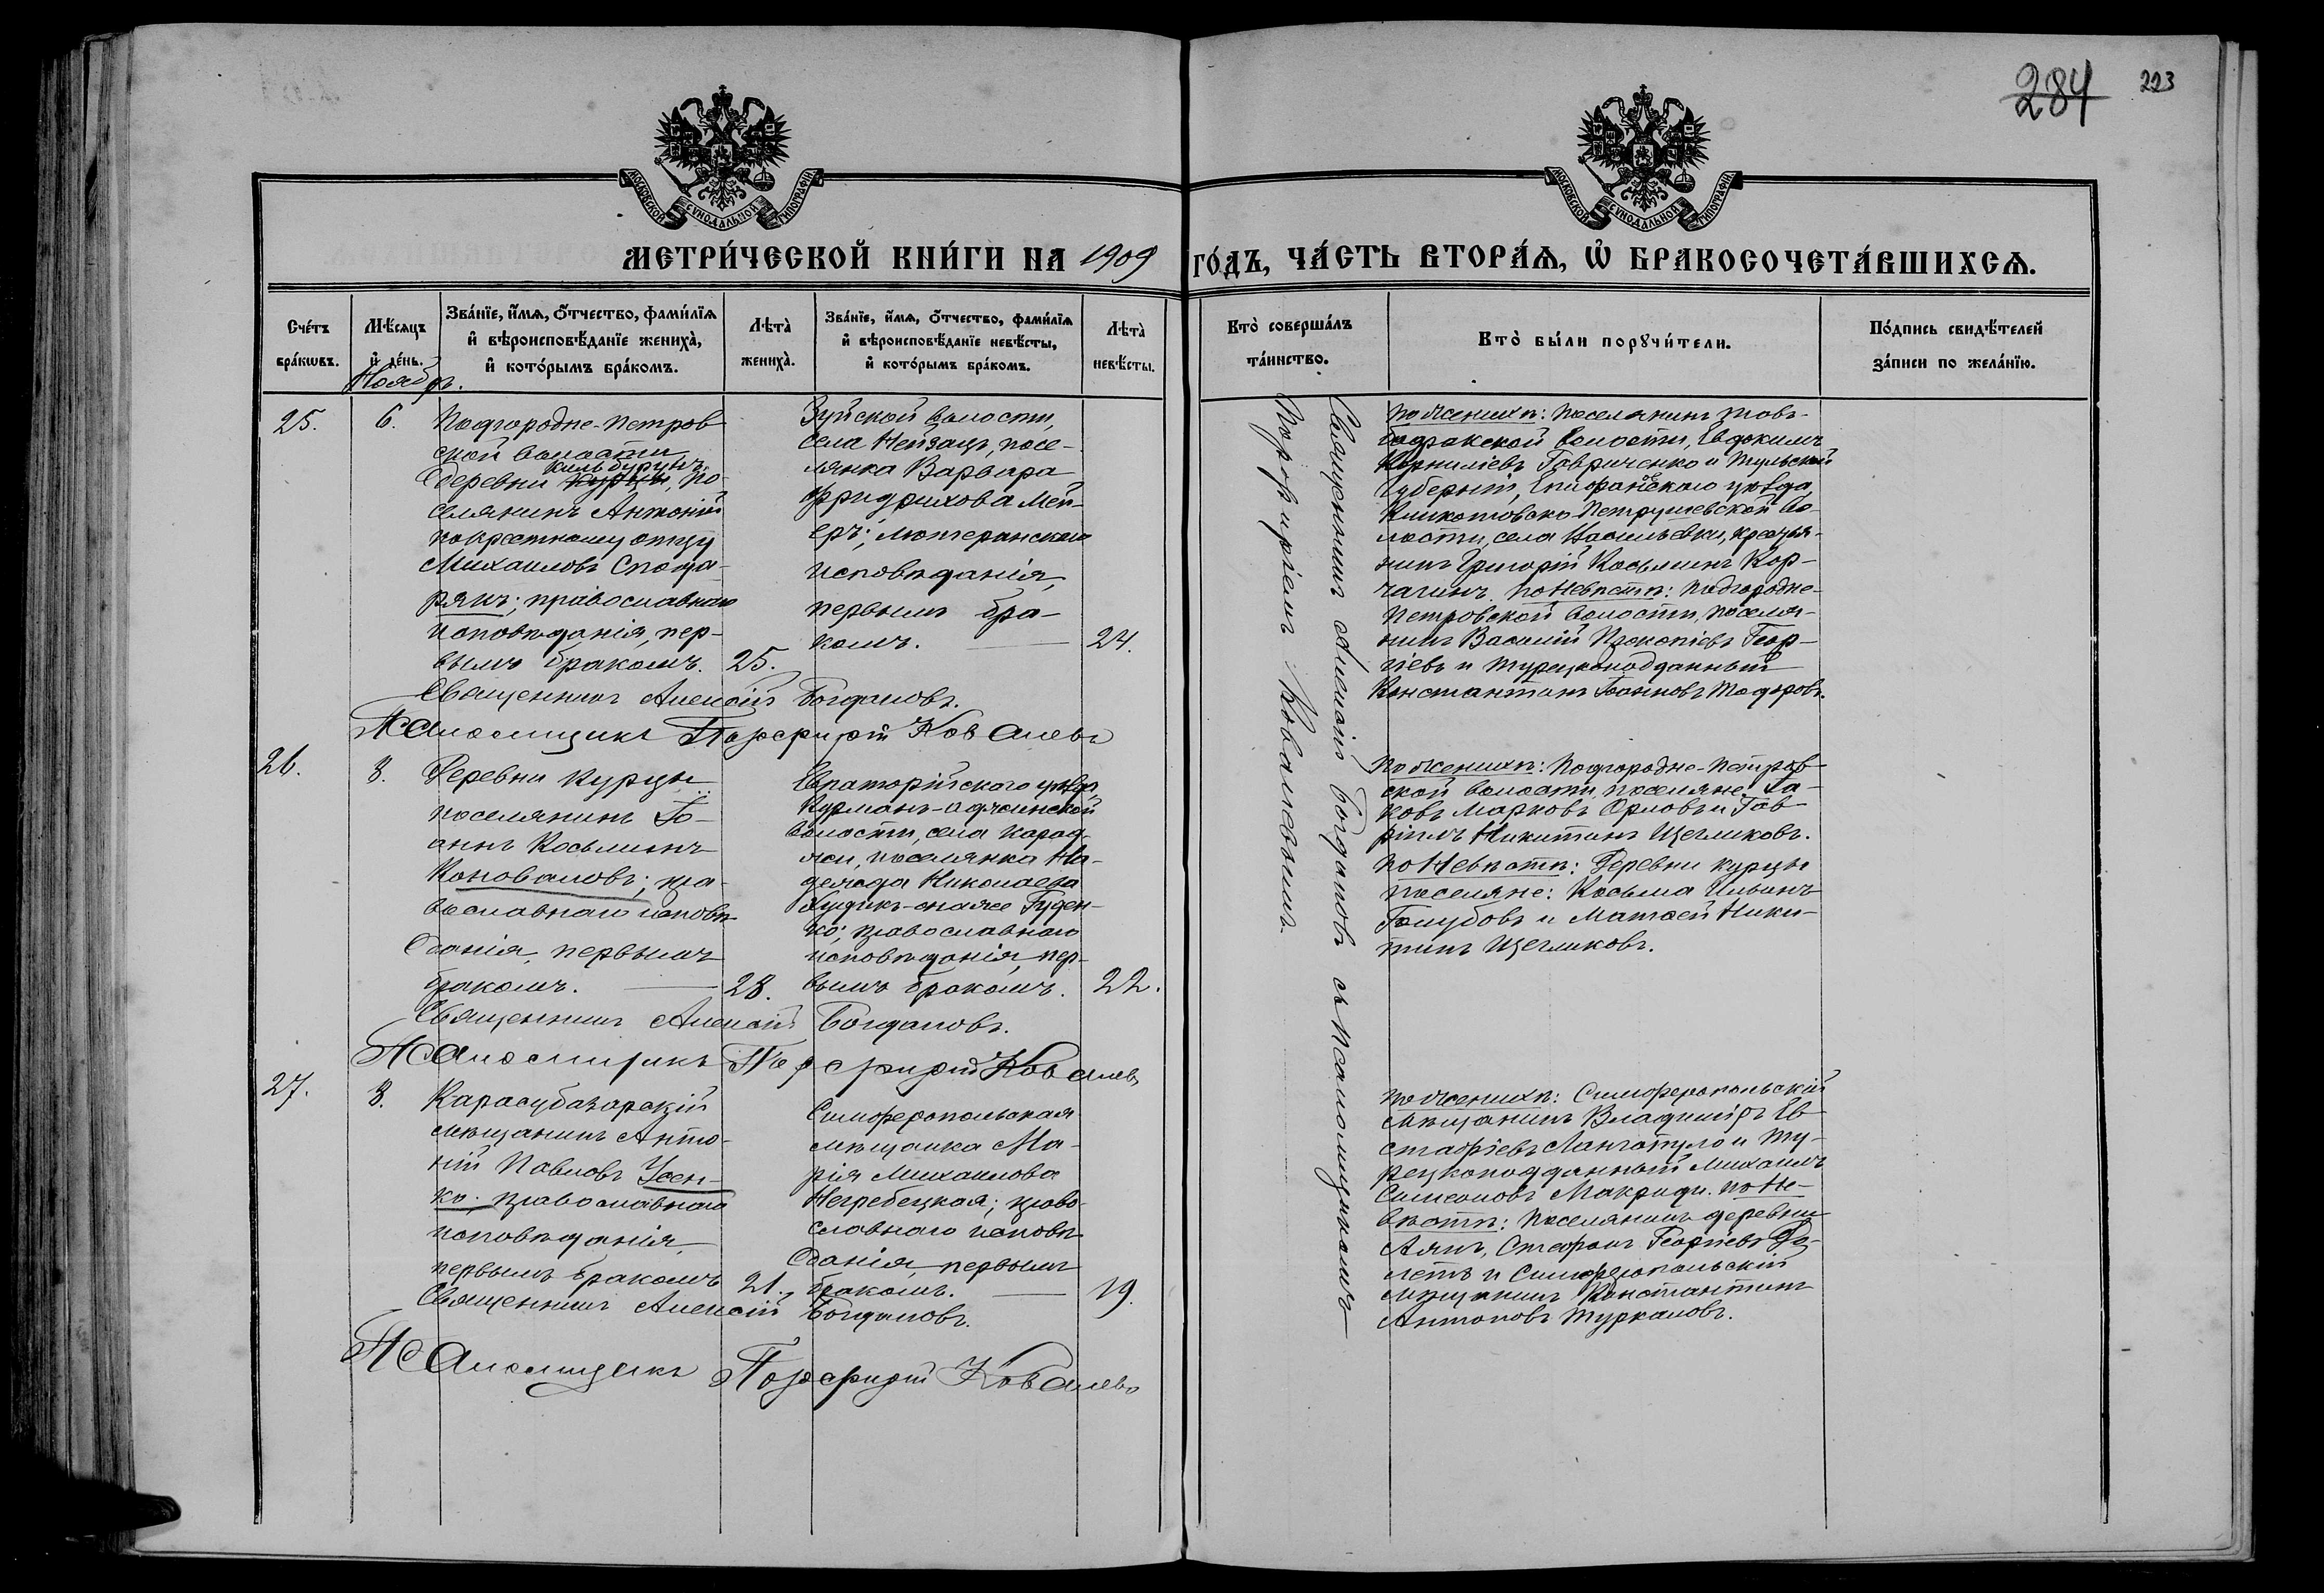 284 223
МОСКОВСКОЙ СѴНОДАЛЬНОЙ ТИПОГРАФІИ
МОСКОВСКОЙ СѴНОДАЛЬНОЙ ТИПОГРАФІИ
МЕТРИ́ЧЕСКОЙ КНИ́ГИ НА 1909 ГО́ДЪ, ЧА́СТЬ ВТОРА́Ѧ, Ѽ БРАКОСОЧЕТА́ВШИХСѦ.
Сче́тъ бра́кѡвъ.
Мѣ́сяцъ и҆ де́нь.
Зва́нїе, и҆́мѧ, ѻ҆́тчество, фами́лїѧ и҆ вѣроисповѣ́данїе жениха̀, и҆ кото́рымъ бра́комъ.
Лѣ́та̀ жениха̀.
Зва́нїе, и҆́мѧ, ѻ҆́тчество, фами́лїѧ и҆ вѣроисповѣ́данїе невѣ́сты, и҆ кото́рымъ бра́комъ.
Лѣ́та̀ невѣ́сты.
Кто̀ соверша́лъ та́инство.
Кто̀ бы́ли порꙋчи́тели.
По́дпись свидѣ́телей за́писи по жела́нїю.
Ноябрь.
25.
6.
Подгородне-Петров
ской волости
Кильбурунъ
деревни Курцы, по-
селянинъ Антоній
по крестному отцу
Михаиловъ Спода-
рякъ; православнаго
исповѣданія, пер-
вымъ бракомъ.
25.
Зуйской волости,
села Нейзацъ, посе-
лянка Варвара
Фридрихова Мей-
еръ; лютеранскаго
исповѣданія,
первымъ бра-
комъ.
24.
Священникъ Алексій Богдановъ.
Псаломщикъ Порфирій Ковалевъ
По женихѣ: поселянинъ
волости, Евдокимъ
Корниліевъ Гавриченко и Тульской
губерніи, Епифанскаго уѣзда,
Петрушевской во-
лости, села Васильевки, крестья-
нинъ Григорій Косьминъ Кор-
чагинъ. По невѣстѣ: Подгородне-
Петровской волости, поселя-
нинъ Василій Прокопіевъ Геор-
гіевъ и турецкоподданный
Константинъ Іоанновъ Тодоровъ.
26.
8.
Деревни Курцы
поселянинъ Іо-
аннъ Косьминъ
Коноваловъ; пра-
вославнаго исповѣ-
данія, первымъ
бракомъ.
28.
Евпаторійскаго уѣзда,
Курманъ-Аджинской
волости, села
поселянка На-
дежда Николаева
онаже Гуден-
ко; православнаго
исповѣданія, пер-
вымъ бракомъ.
22.
Священникъ Алексій Богдановъ.
Псаломщикъ Порфирій Ковалевъ
По женихѣ: Подгородне-Петров-
ской волости поселяне: Іа-
ковъ Марковъ Орловъ и Гав-
ріилъ Никитинъ Щегликовъ.
По невѣстѣ: деревни Курцы
поселяне: Косьма Ильинъ
Голубовъ и Матѳей Ники-
тинъ Щегликовъ.
27.
8.
Карасубазарскій
мѣщанинъ Анто-
ній Павловъ Усен-
ко; православнаго
исповѣданія,
первымъ бракомъ
21.
Симферопольская
мѣщанка Ма-
рія Михаилова
Негребецкая; право-
славнаго исповѣ-
данія, первымъ
бракомъ.
19.
Священникъ Алексій Богдановъ.
Псаломщикъ Порфирій Ковалевъ
По женихѣ: Симферопольскій
мѣщанинъ Владиміръ Ев-
стафіевъ и ту-
рецкоподданный Михаилъ
Симеоновъ Макриди. По не-
вѣстѣ: поселянинъ деревни
Аянъ, Стефанъ Георгіевъ
и Симферопольскій
мѣщанинъ Константинъ
Антоновъ Туркаловъ.
Священникъ Алексій Богдановъ съ псаломщикомъ
Порфиріемъ Ковалевымъ.